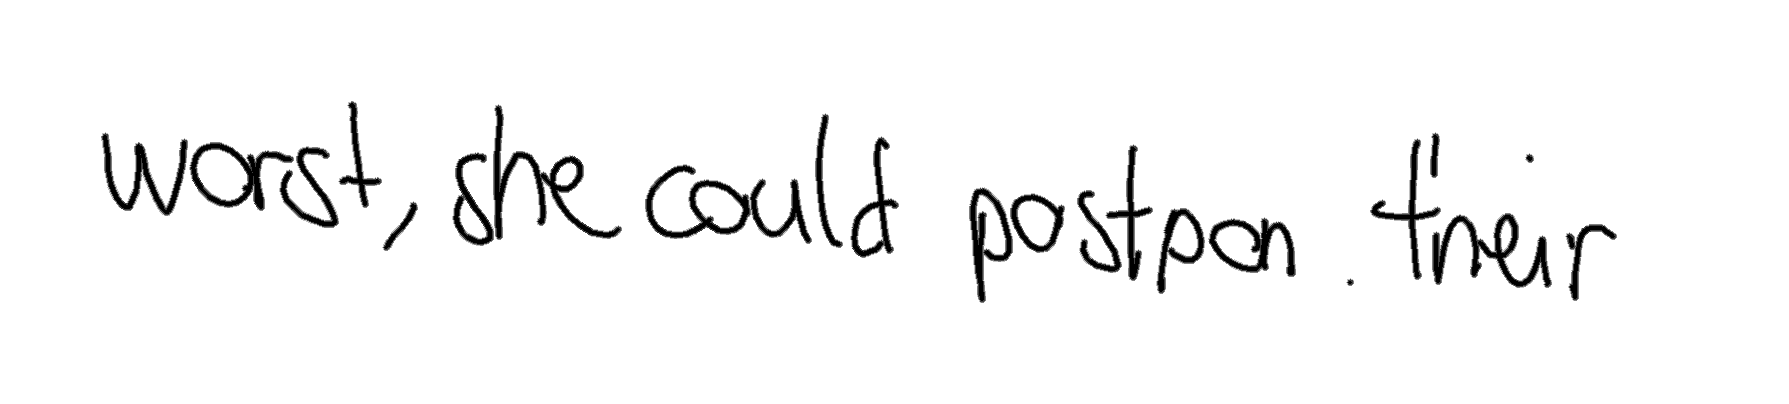 worst, she could postpon. their